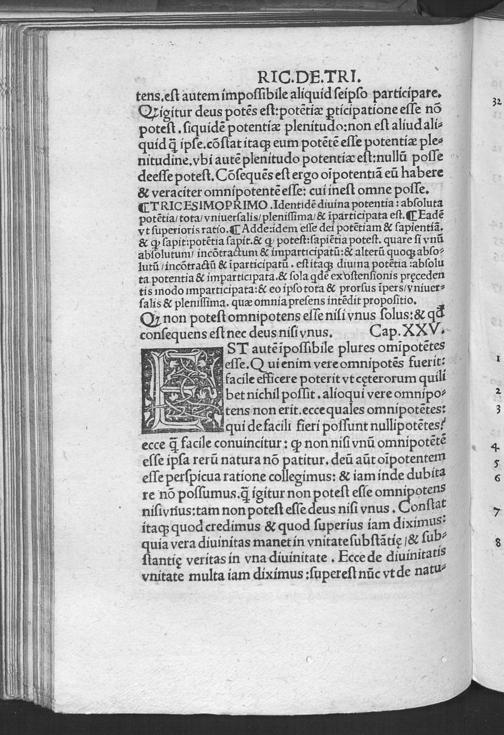 RIC.DE.TRI.
tens. est autem impossibile aliquid seipso participare.
Q igitur deus potēs est: potētiæ pticipatione esse nō
potest. siquidē potentiæ plenitudo: non est aliud ali-
quid q̄ ipse. cōstat itaq; eum potētē esse potentiæ ple-
nitudine. vbi autē plenitudo potentiæ est: nullū posse
deesse potest. Cōsequēs est ergo oīpotentiā eū habere
& veraciter omnipotentē esse: cui inest omne posse.
¶TRICESIMOPRIMO. Identidē diuina potentia: absoluta
potētia/ tota/ vniuersalis/ plenissima/ & īparticipata est. ¶ Eadē
vt superioris ratio. ¶ Adde: idem esse dei potētiam & sapientiā.
& ꝙ sapit: potētia sapit. & ꝙ potest: sapiētia potest. quare si vnū
absolutum/ incōtractum & imparticipatū: & alterū quoq; abso-
lutū/ incōtractū & īparticipatū. est itaq; diuina potētia: absolu
ta potentia & imparticipata. & sola qdē ex oſtensionis pręceden
tis modo imparticipata: & eo ipso tota & prorsus īpers/ vniuer-
salis & plenissima. quæ omnia presens intēdit propositio.
Q non potest omnipotens esse nisi vnus solus: & qd
consequens est nec deus nisi vnus. Cap.XXV.
EST autē īpossibile plures omīpotētes
esse. Q ui enim vere omnipotēs fuerit:
facile efficere poterit vt cęterorum quili
bet nichil possit. alioqui vere omnipo-
tens non erit. ecce quales omnipotētes:
qui de facili fieri possunt nullipotētes?
ecce q̄ facile conuincitur: ꝙ non nisi vnū omnipotētē
esse ipsa rerū natura nō patitur. deū aūt oīpotentem
esse perspicua ratione collegimus: & iam inde dubita
re nō possumus. q̄ igitur non potest esse omnipotens
nisi vnus: tam non potest esse deus nisi vnus. Constat
itaq; quod credimus & quod superius iam diximus:
quia vera diuinitas manet in vnitate substātię/ & sub-
stantię veritas in vna diuinitate. Ecce de diuinitatis
vnitate multa iam diximus: superest nūc vt de natu-
32
1
2
3
4
5
6
7
8